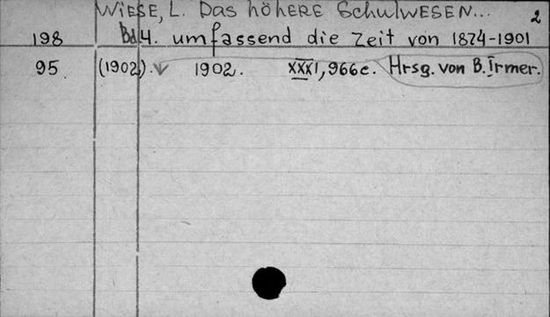 WIESE, L. Das höhere Schulwesen... 2
198 Bd 4. umfassend die Zeit von 1874-1901
95 (1902). 1902. XXXI, 966c. Hrsg. von B. Irmer.